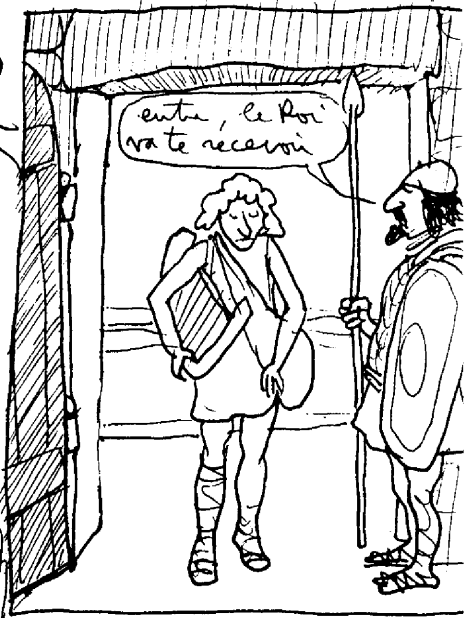 entre, le Roi
va te recevoir